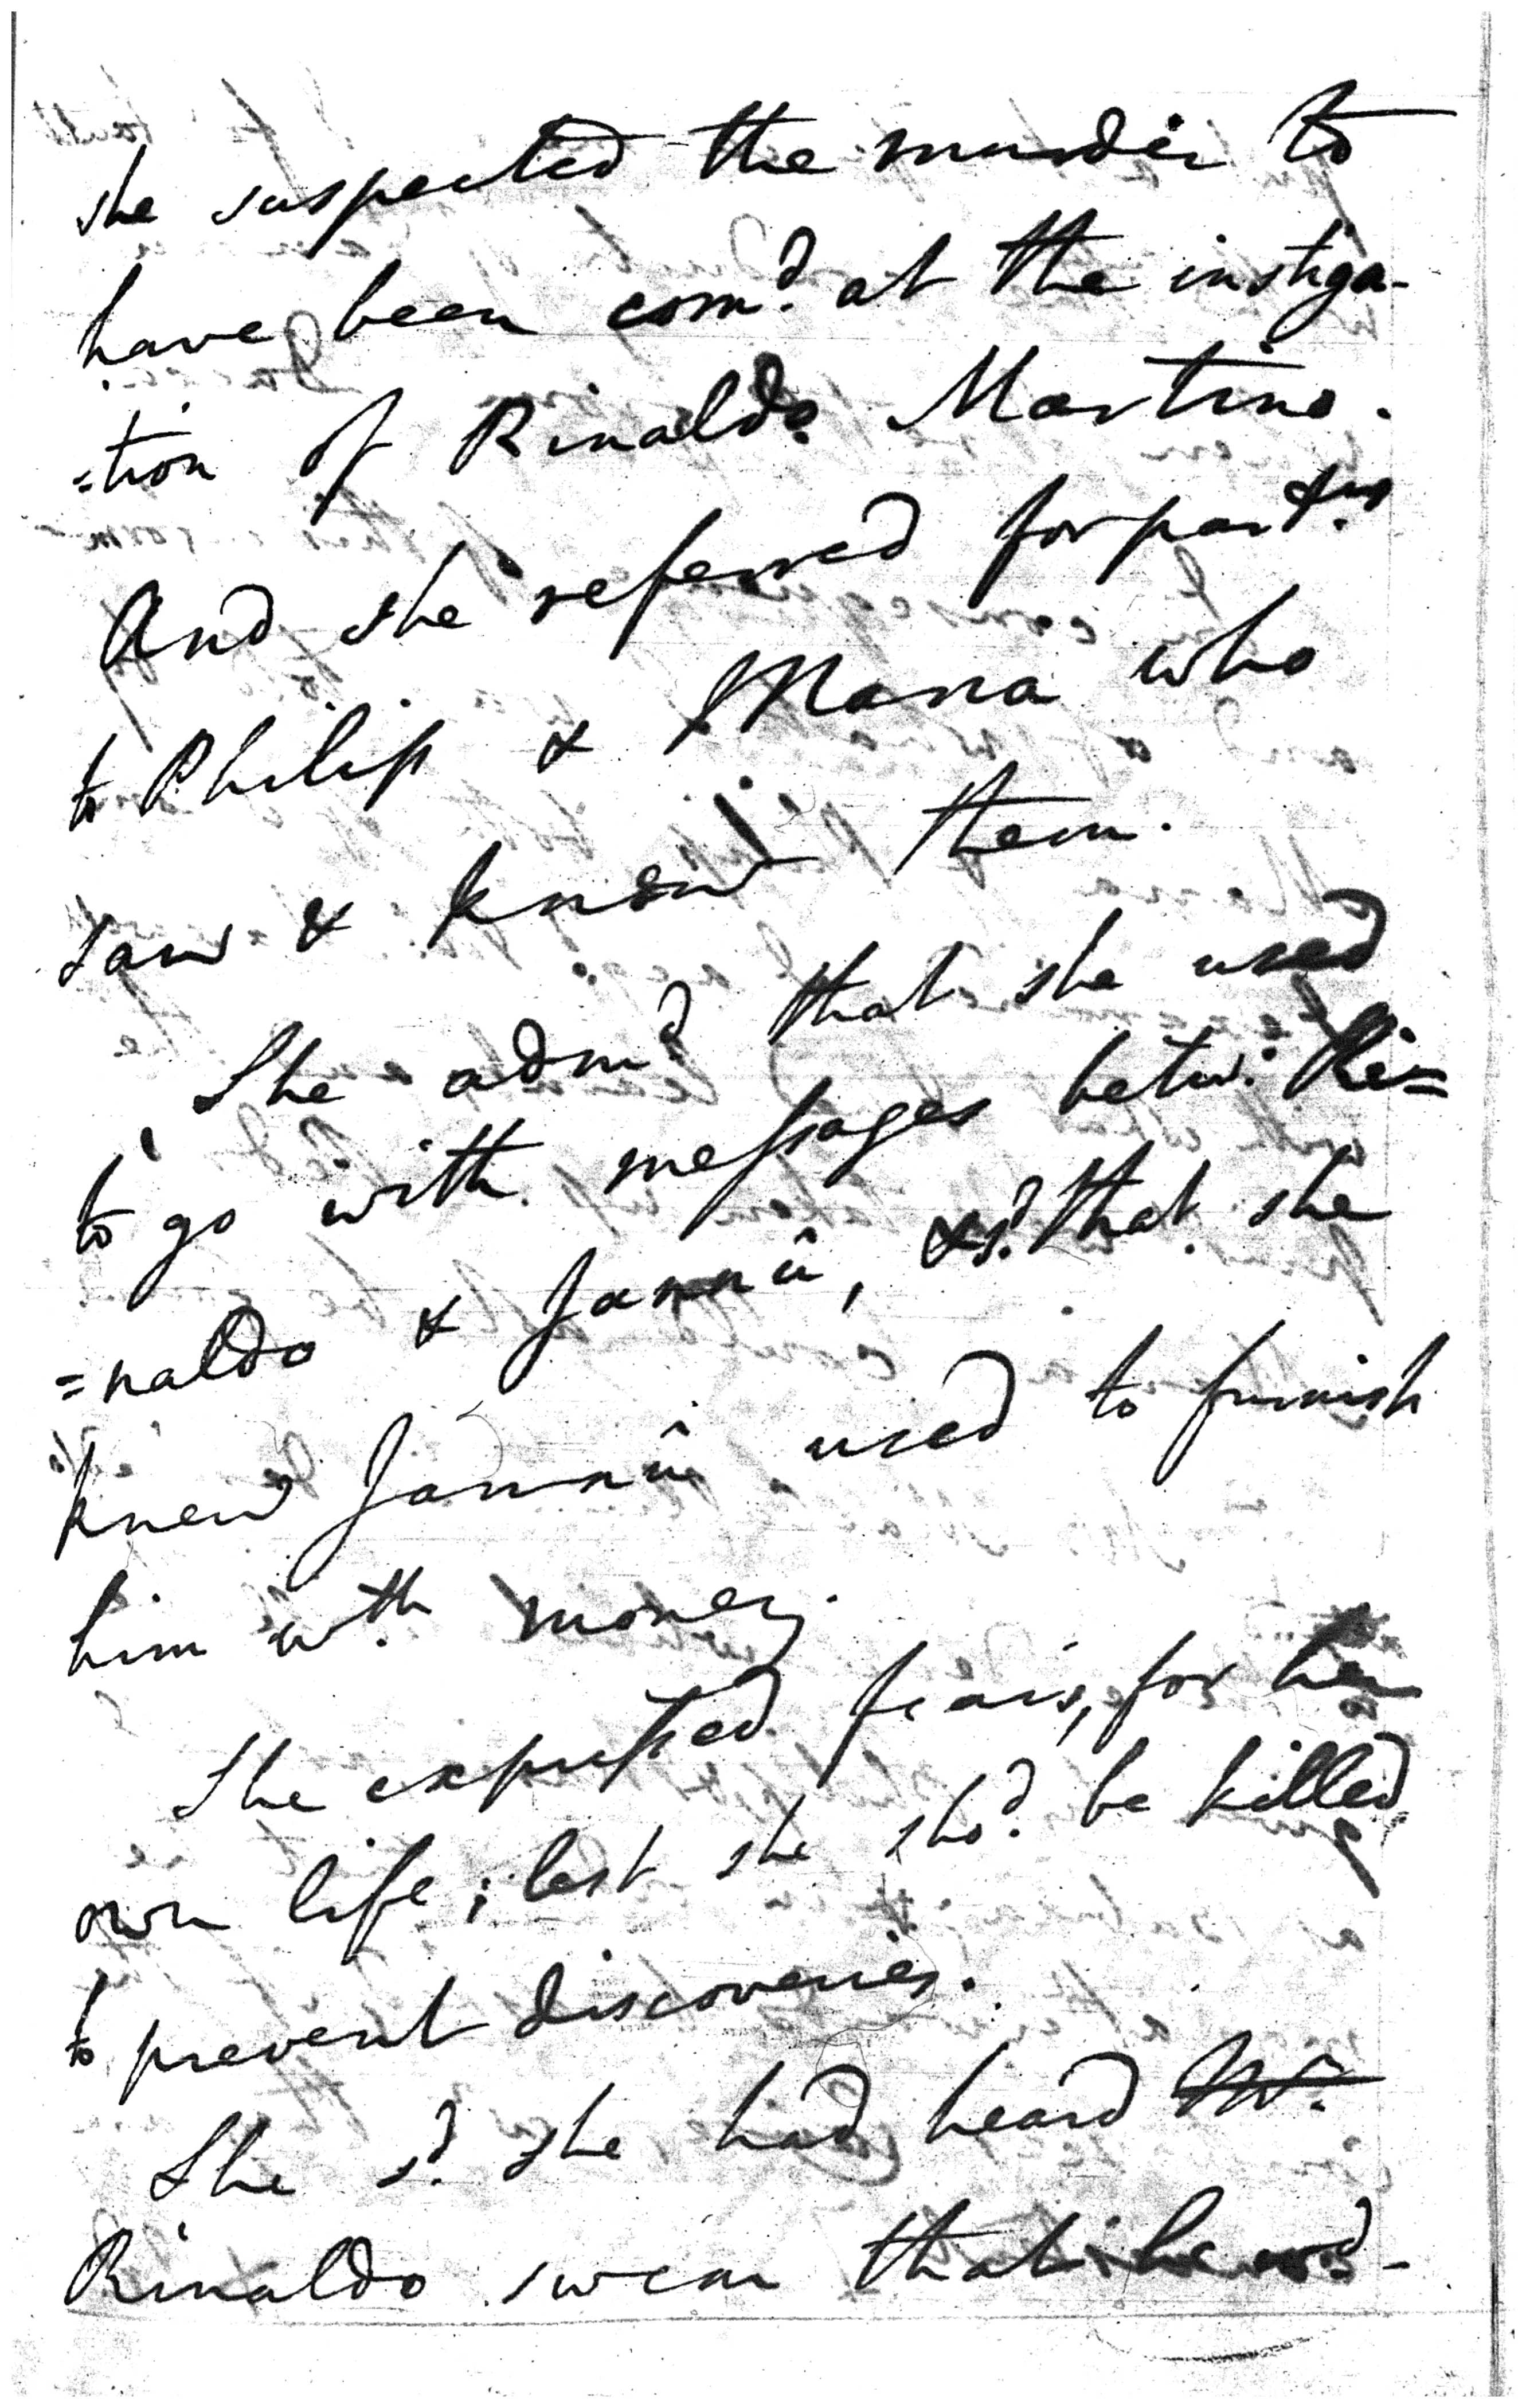 she suspected the murder to
have been com.d at the instiga-
=tion of Rinaldo Martino.
And she referred for part.rs
to Philip & Maria who
saw & know them.
She adm.d that she used
to go with messages betw. Ri=
=naldo & Jannü, & s.d that she
knew Jannü used to furnish
him w.th money.
She expressed fears, for her
own life; lest she sho.d be killed
to prevent discoveries.
She s.d she had heard Mr.
Rinaldo swear that he wo.d -